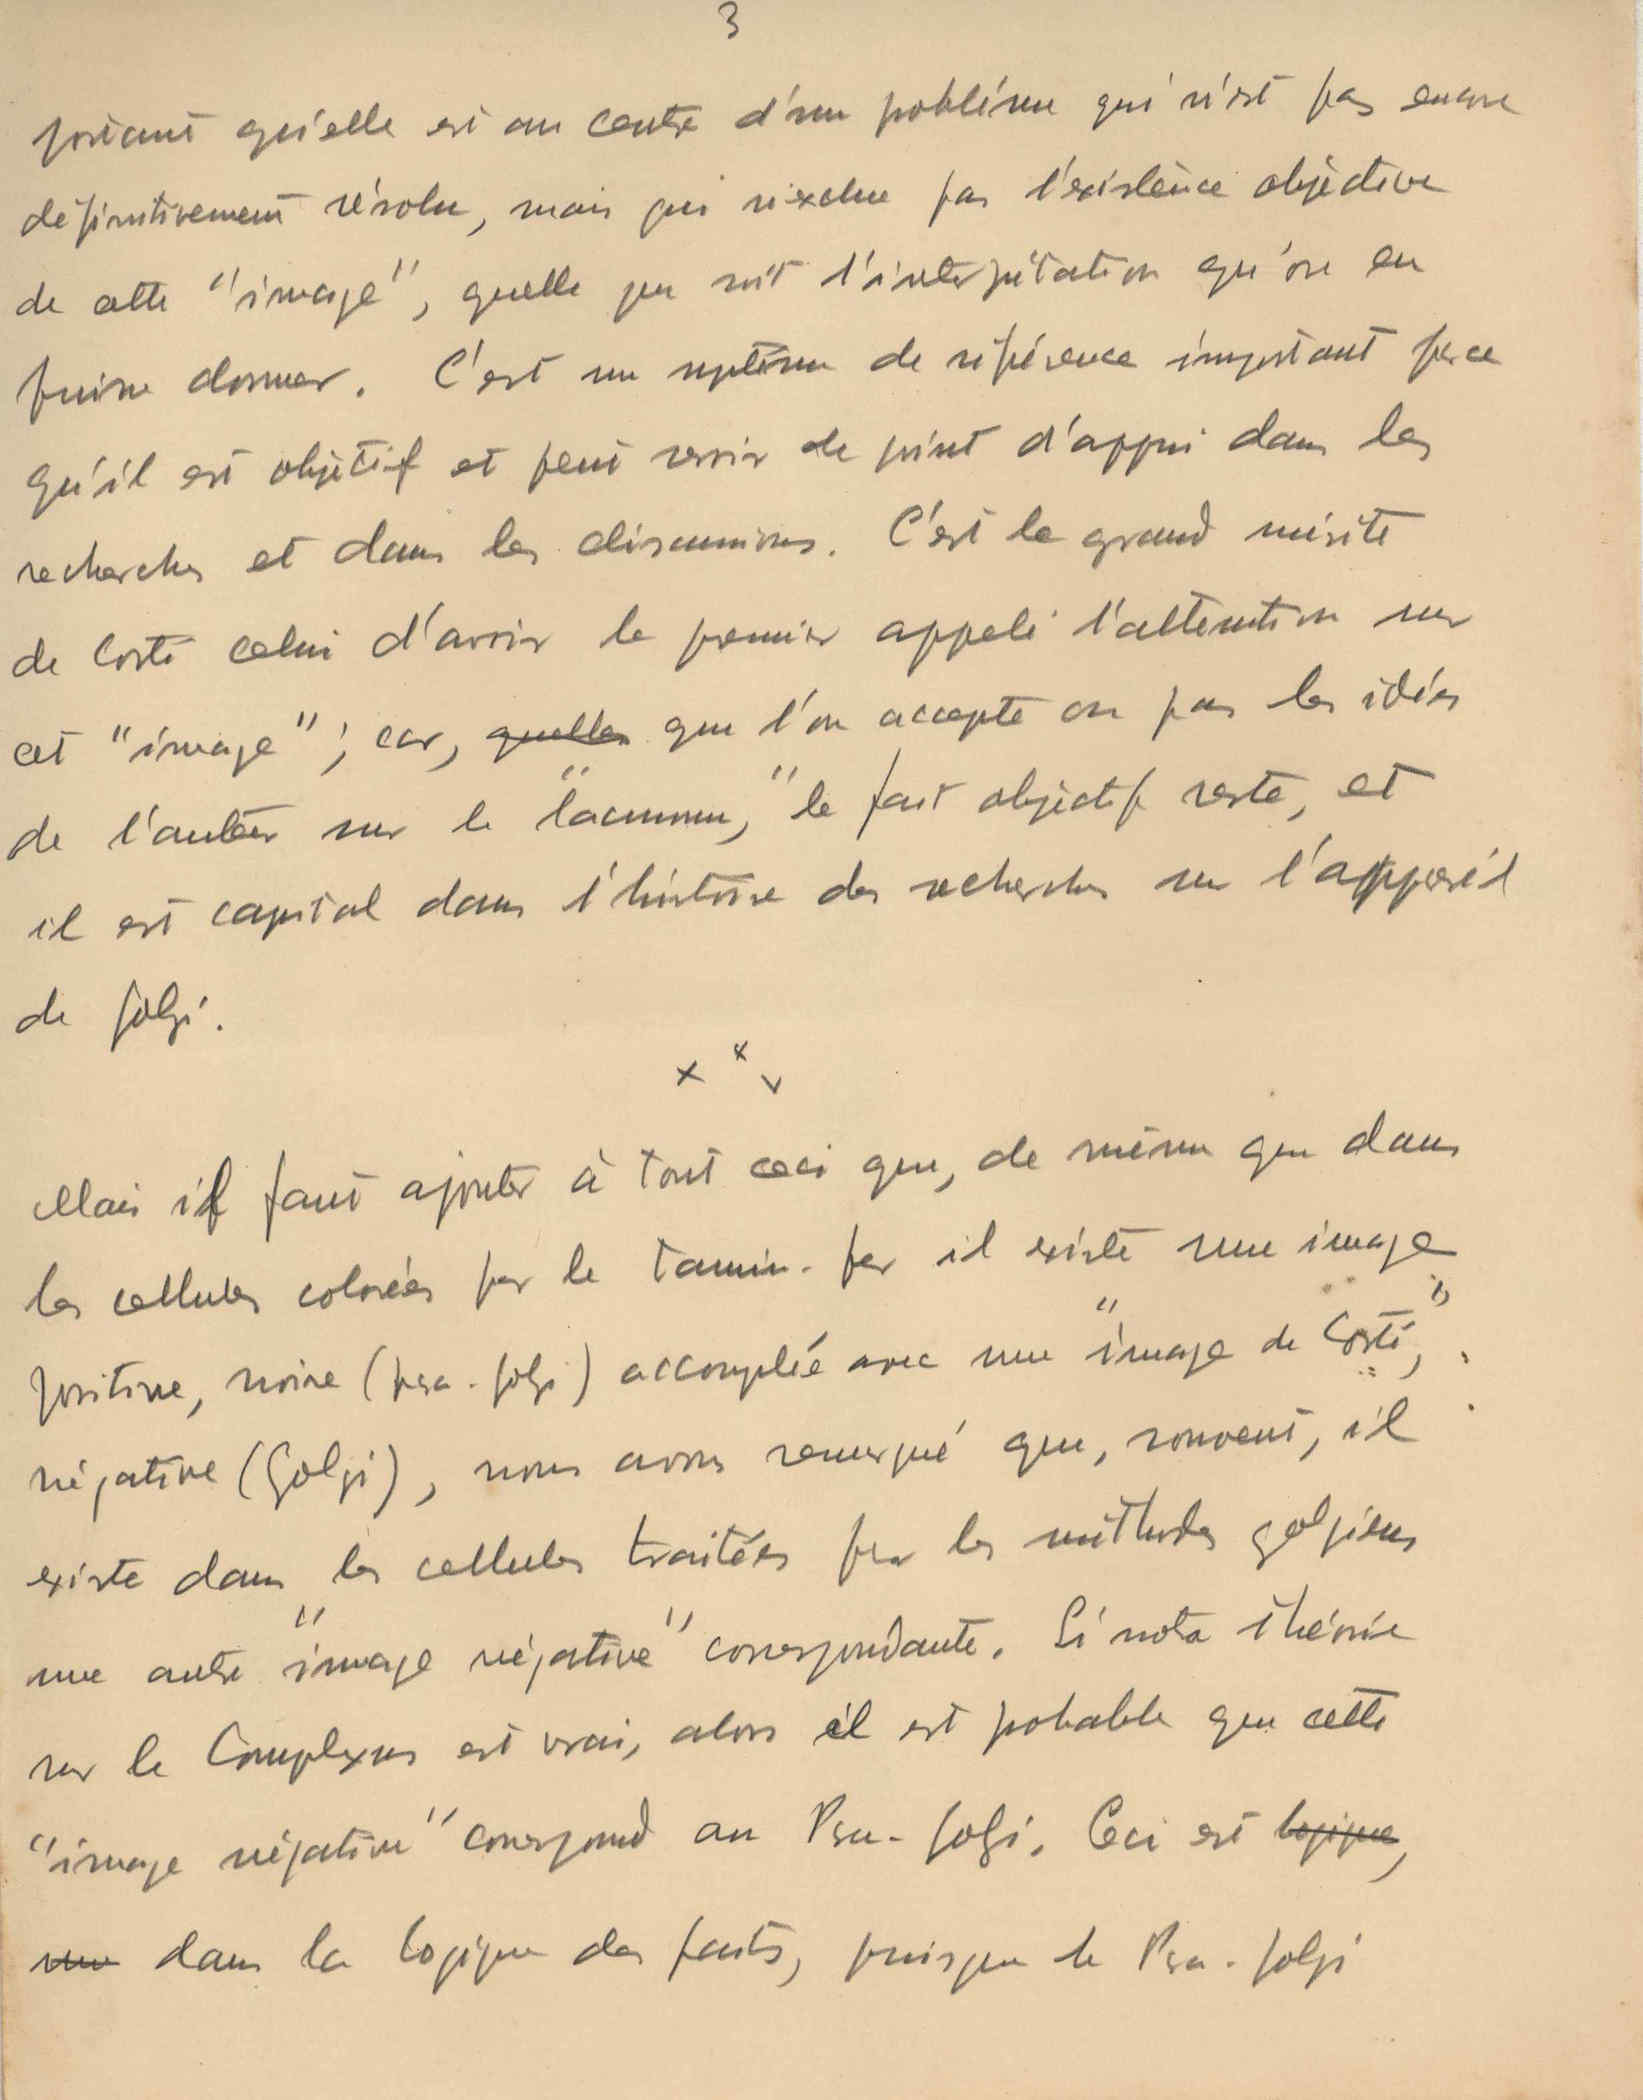 3
portant qu'elle est au centre d'un problème qui n'est pas encore
définitivement résolu, mais qui n'exclue pas l'existence objective
de cette "image", quelle que soit l'interprétation qu'on en
puisse donner. C'est un système de référence important parce
qu'il est objectif et peut servir de point d'appui dans les
recherches et dans les discussions. C'est le grand mérite
de Corti celui d'avoir le premier appelé l'attention sur
cet "image"; car, quelles que l'on accepte ou pas les idées
de l'auteur sur le "lacunome," le fait objectif reste, et
il est capital dans l'histoire des recherches sur l'appareil
de Golgi.
x x x
Mais il faut ajouter à tout ceci que, de même que dans
les cellules colorées par le tannin-fer il existe une image
positive, noire (para-Golgi) accouplée avec une "image de Corti,"
négative (Golgi), nous avons remarqué que, souvent, il
existe dans les cellules traitées par les méthodes golgiens
une autre "image négative" correspondante. Si notre théorie
sur le Complexus est vrai, alors il est probable que cette
"image négative" correspond au Para-Golgi. Ceci est logique,
dans la logique des faits, puisque le Para-Golgi